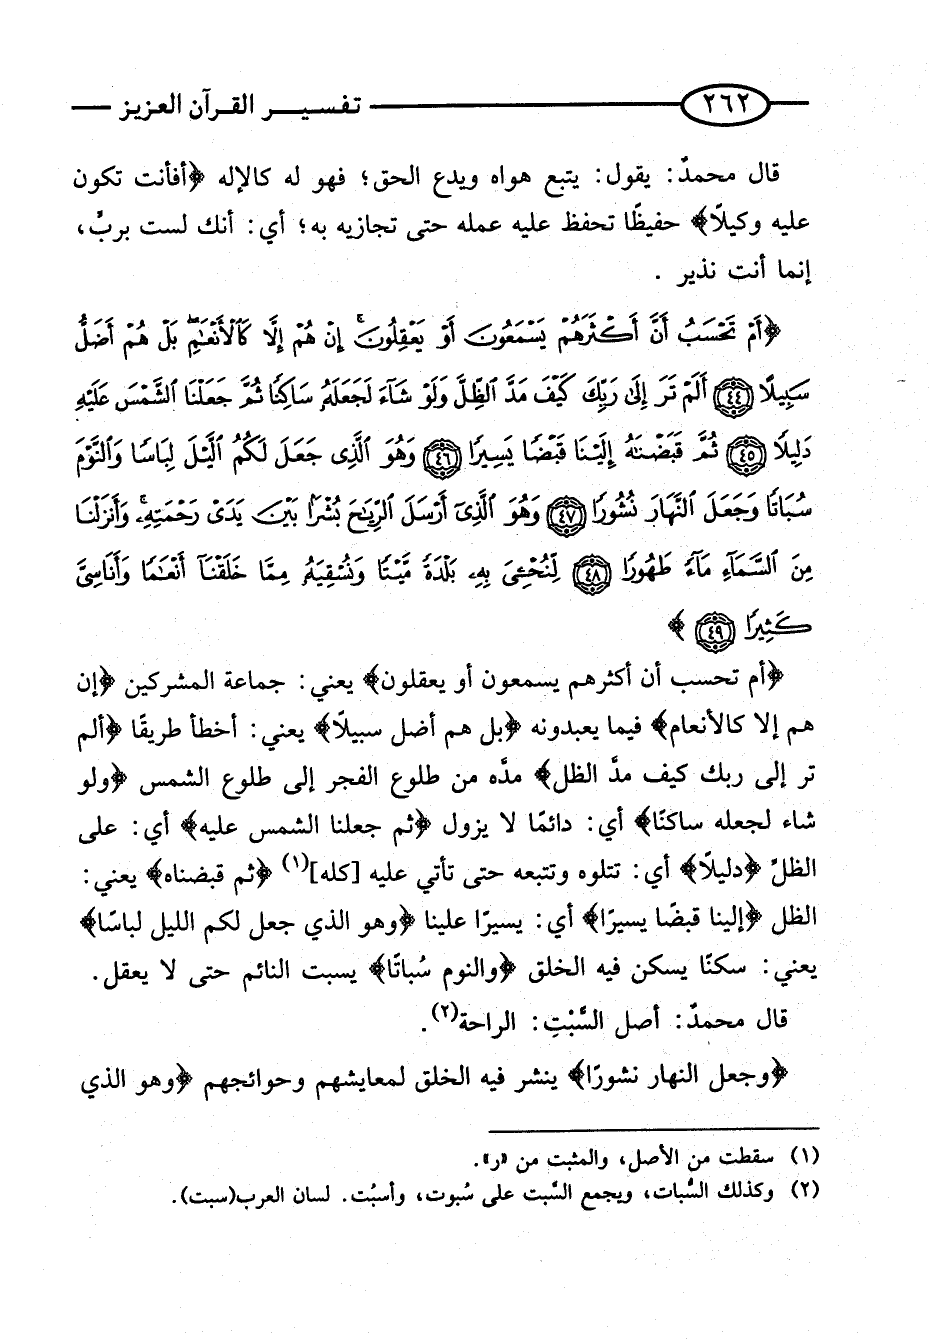 ٢٦٢ تفسير القرآن العزيز
قال محمدٌ: يقول: يتبع هواه ويدع الحق؛ فهو له كالإله ﴿أفأنت تكون
عليه وكيلًا﴾ حفيظًا تحفظ عليه عمله حتى تجازيه به؛ أي: أنك لست بربٍّ،
إنما أنت نذير .
﴿أَمْ تَحْسَبُ أَنَّ أَكْثَرَهُمْ يَسْمَعُونَ أَوْ يَعْقِلُونَ ۚ إِنْ هُمْ إِلَّا كَالْأَنْعَٰمِ ۖ بَلْ هُمْ أَضَلُّ
سَبِيلًا ٤٤ أَلَمْ تَرَ إِلَىٰ رَبِّكَ كَيْفَ مَدَّ ٱلظِّلَّ وَلَوْ شَآءَ لَجَعَلَهُۥ سَاكِنًا ثُمَّ جَعَلْنَا ٱلشَّمْسَ عَلَيْهِ
دَلِيلًا ٤٥ ثُمَّ قَبَضْنَٰهُ إِلَيْنَا قَبْضًا يَسِيرًا ٤٦ وَهُوَ ٱلَّذِى جَعَلَ لَكُمُ ٱلَّيْلَ لِبَاسًا وَٱلنَّوْمَ
سُبَاتًا وَجَعَلَ ٱلنَّهَارَ نُشُورًا ٤٧ وَهُوَ ٱلَّذِىٓ أَرْسَلَ ٱلرِّيَٰحَ بُشْرًۢا بَيْنَ يَدَىْ رَحْمَتِهِۦ ۚ وَأَنزَلْنَا
مِنَ ٱلسَّمَآءِ مَآءً طَهُورًا ٤٨ لِّنُحْۦِىَ بِهِۦ بَلْدَةً مَّيْتًا وَنُسْقِيَهُۥ مِمَّا خَلَقْنَآ أَنْعَٰمًا وَأَنَاسِىَّ
كَثِيرًا ٤٩ ﴾
﴿أم تحسب أن أكثرهم يسمعون أو يعقلون﴾ يعني: جماعة المشركين ﴿إن
هم إلا كالأنعام﴾ فيما يعبدونه ﴿بل هم أضل سبيلًا﴾ يعني: أخطأ طريقًا ﴿ألم
تر إلى ربك كيف مدَّ الظل﴾ مدَّه من طلوع الفجر إلى طلوع الشمس ﴿ولو
شاء لجعله ساكنًا﴾ أي: دائمًا لا يزول ﴿ثم جعلنا الشمس عليه﴾ أي: على
الظلِّ ﴿دليلًا﴾ أي: تتلوه وتتبعه حتى تأتي عليه [كله](١) ﴿ثم قبضناه﴾ يعني:
الظل ﴿إلينا قبضًا يسيرًا﴾ أي: يسيرًا علينا ﴿وهو الذي جعل لكم الليل لباسًا﴾
يعني: سكنًا يسكن فيه الخلق ﴿والنوم سُباتًا﴾ يسبت النائم حتى لا يعقل.
قال محمدٌ: أصل السَّبْتِ: الراحة(٢).
﴿وجعل النهار نشورًا﴾ ينشر فيه الخلق لمعايشهم وحوائجهم ﴿وهو الذي
(١) سقطت من الأصل، والمثبت من «ر».
(٢) وكذلك السُّبات، ويجمع السَّبت على سُبوت، وأسبُت. لسان العرب(سبت).